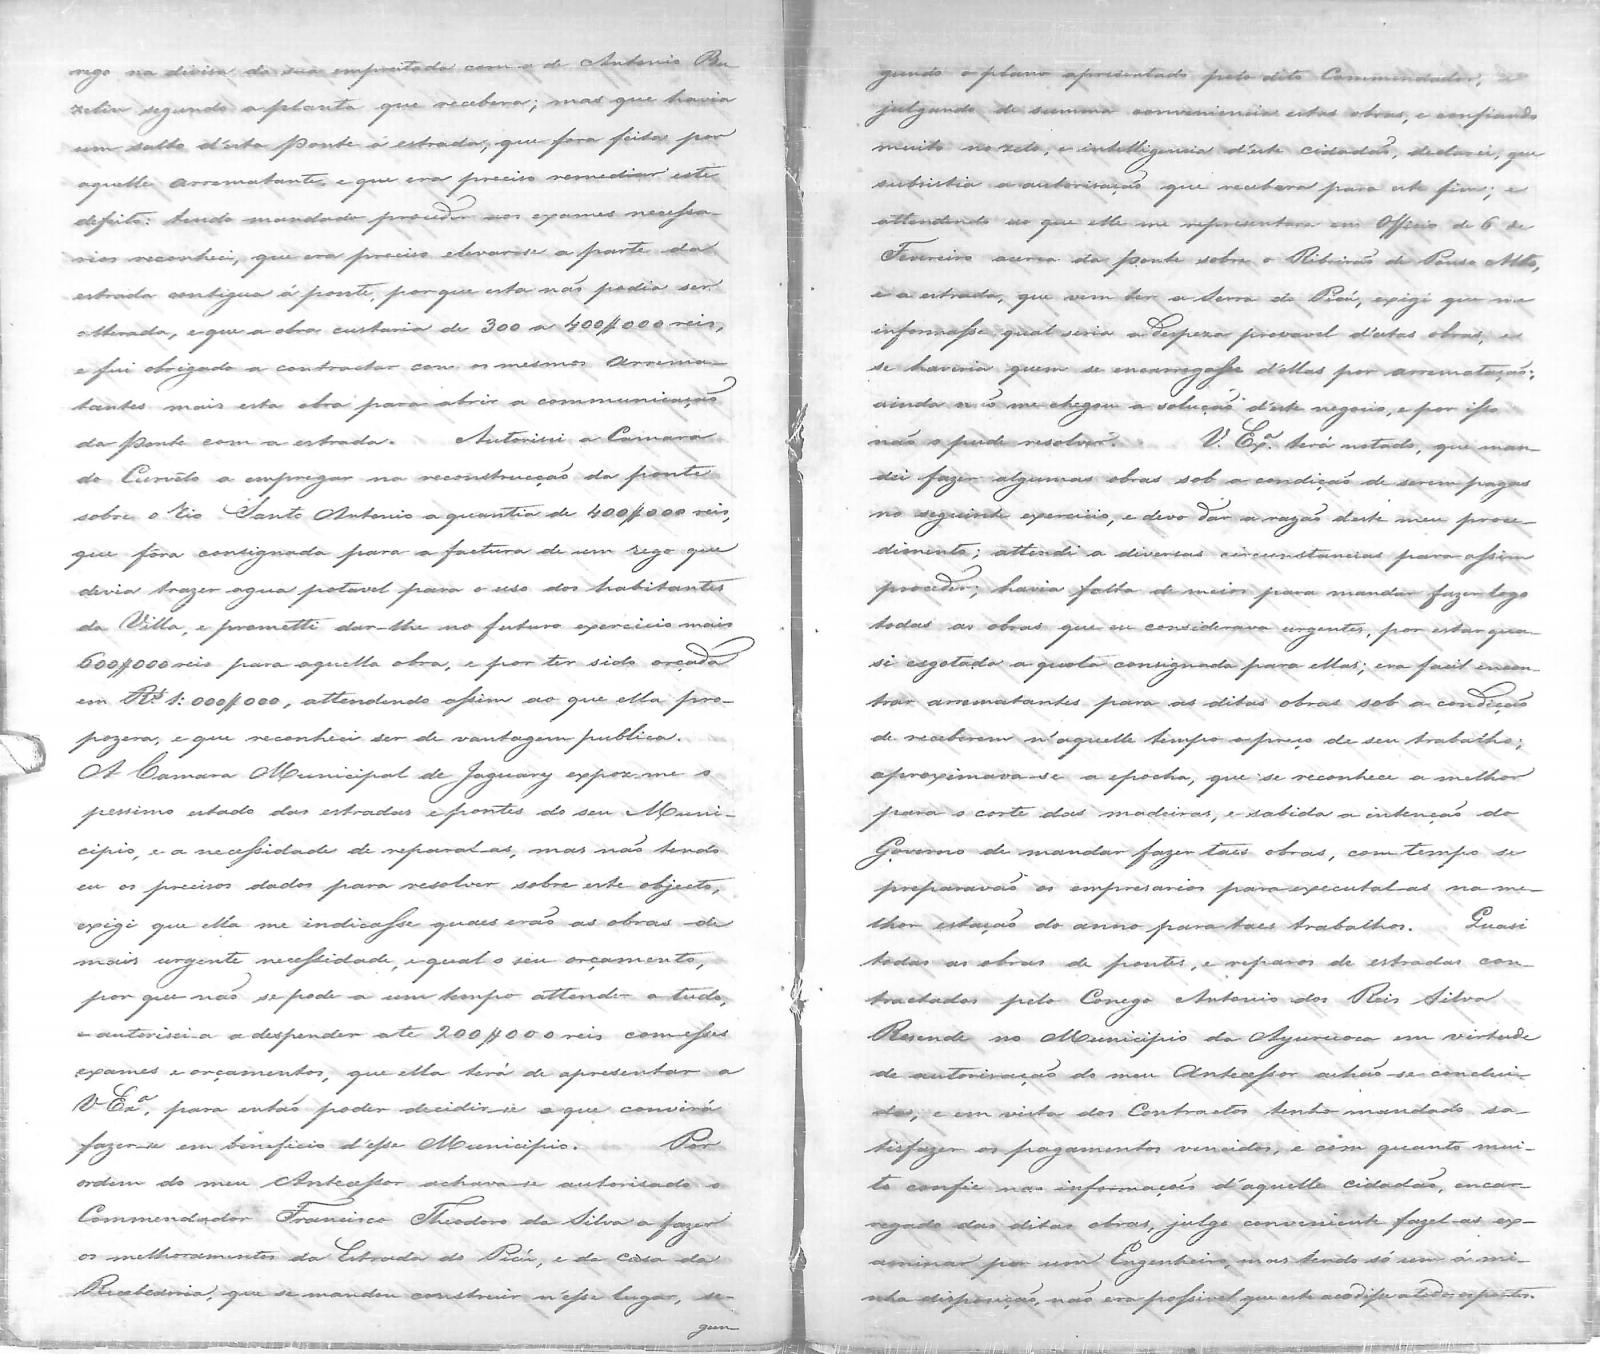 rego na divisa da sua empreitada com a de Antonio Bu
zelin segundo a planta que recebera; mas que havia
um salto d'esta ponte á estrada, que fora feita por
aquelle arrematante, e que era preciso remediar este
defeito: tendo mandado proceder aos exames necessa-
rios reconheci, que era preciso elevar-se a parte da
estrada contigua á ponte, por que esta não podia ser
alterada, e que a obra custaria de 300 a 400$000 reis,
e fui obrigado a contractar com os mesmos arrema-
tantes mais esta obra para abrir a communicação
da ponte com a estrada. Autorisei a Camara
do Curvêlo a empregar na reconstrucção da ponte
sobre o rio Santo Antonio a quantia de 400$000 reis,
que fôra consignada para a factura de um rego que
devia trazer agua potavel para o uso dos habitantes
da Villa, e prometti dar-lhe no futuro exercicio mais
600$000 reis para aquella obra, e por ter sido orçada
em Rs. 1:000$000, attendendo assim ao que ella pro-
pozera, e que reconheci ser de vantagem publica.
A Camara Municipal de Jaguary expoz-me o
pessimo estado das estradas e pontes do seu Muni-
cipio, e a necessidade de reparal-as, mas não tendo
eu os precisos dados para resolver sobre este objecto,
exigi que ella me indicasse quaes erão as obras de
mais urgente necessidade, e qual o seu orçamento,
por que não se pode a um tempo attender a tudo,
e autorisei-a a despender até 200$000 reis com esses
exames e orçamentos, que ella terá de apresentar a
V. Exa. para então poder decidir-se o que convirá
fazer-se em beneficio d'esse Municipio. Por
ordem do meu Antecessor achava-se autorisado o
Commendador Francisco Theodoro da Silva a fazer
os melhoramentos da Estrada do Picú, e da casa da
Recebedoria, que se mandou construir n'esse lugar, se-
gun
gundo o plano apresentado pelo dito Commendador, e
julgando de summa conveniencia estas obras, e confiando
muito no zelo, e intelligencia d'este cidadão, declarei, que
subsistia a autorisação que recebera para este fim; e
attendendo ao que elle me representara em Officio de 6 de
Fevereiro acerca da ponte sobre o Ribeirão de Pouso Alto,
e a estrada, que vem ter a Serra do Picú, exigi que me
informasse qual seria a despeza provavel d'estas obras, e
se haveria quem se encarregasse d'ellas por arrematação;
ainda não me chegou a solução d'este negocio, e por isso
não o pude resolver. V. Exa. terá notado, que man-
dei fazer algumas obras sob a condição de serem pagas
no seguinte exercicio, e devo dar a razão deste meu proce-
dimento; attendi a diversas circunstancias para assim
proceder; havia falta de meios para mandar fazer logo
todas as obras que eu considerava urgentes, por estar qua-
si esgotada a quota consignada para ellas; era facil encon-
trar arrematantes para as ditas obras sob a condição
de receberem n'aquelle tempo o preço de seu trabalho;
aproximava-se a epocha, que se reconhece a melhor
para o corte das madeiras, e sabida a intenção do
Governo de mandar fazer taes obras, com tempo se
preparavão os empresarios para executal-as na me-
lhor estação do anno para taes trabalhos. Quasi
todas as obras de pontes, e reparos de estradas con-
tractados pelo Conego Antonio dos Reis Silva
Resende no Municipio da Ayuruoca em virtude
de autorisação do meu Antecessor achão-se conclui-
das, e em vista dos Contractos tenho mandado sa-
tisfazer os pagamentos vencidos, e com quanto mui-
to confie nas informações d'aquelle cidadão, encar-
regado das ditas obras, julgo conveniente fazel-as ex-
aminar por um Engenheiro, mas tendo só um á mi-
nha disposição, não era possivel que este acodisse a todos os pontos.